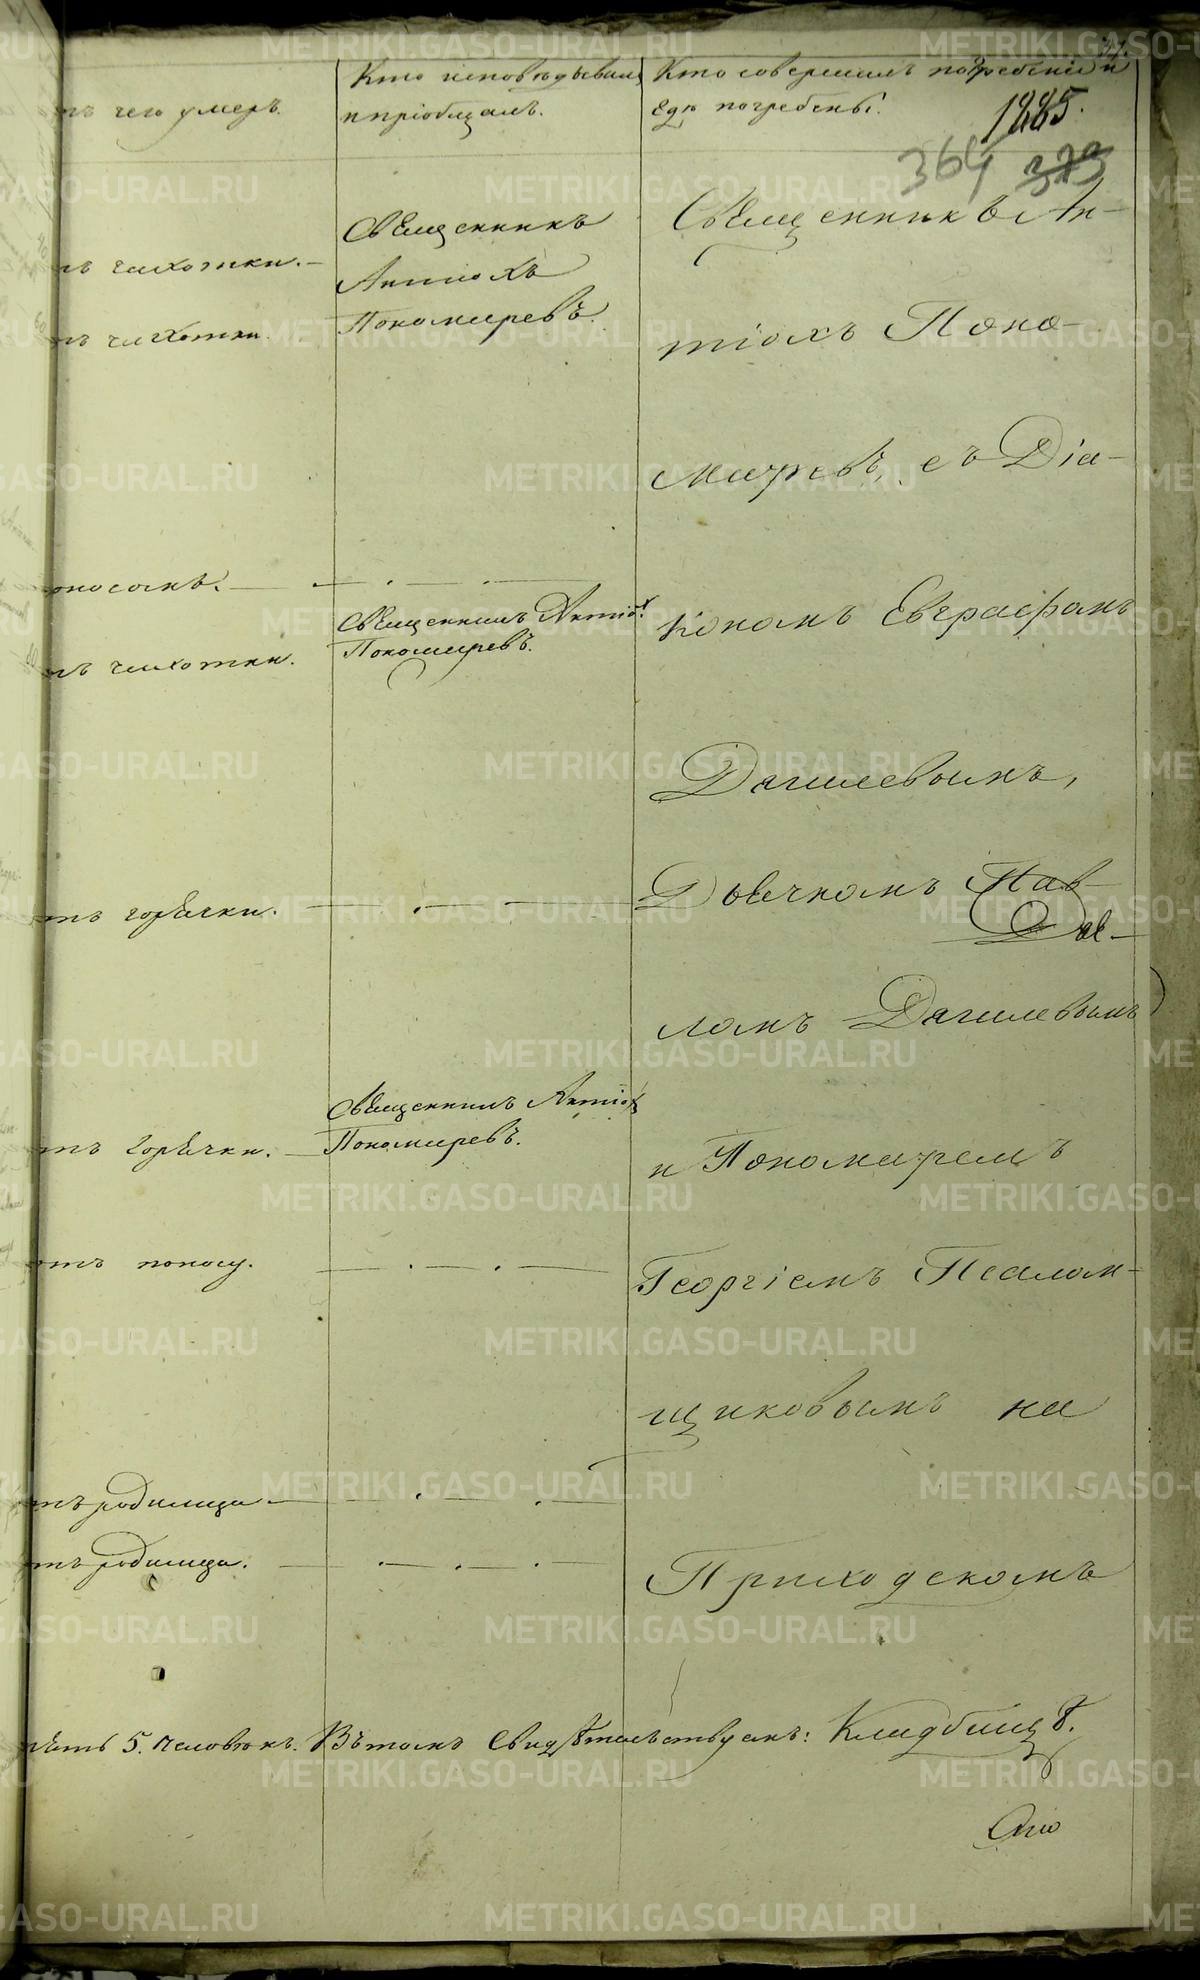 тъ чего умеръ.
Кто исповѣдывалъ
и пріобщалъ.
Кто совершалъ погребеніе и
гдѣ погребены.
1885.
364 373
тъ чихотки.
тъ чихотки.
Священникъ
Антіохъ
Пономаревъ.
Священникъ Ан-
тіохъ Поно-
маревъ, съ Діа-
кономъ Евграфомъ
Дягилевымъ,
Дьячкомъ Пав-
Дяг-
ломъ Дягилевымъ
и Пономаремъ
Георгіемъ Псалом-
щиковымъ на
Приходскомъ
Кладбищѣ.
оносомъ.
тъ чихотки.
Священникъ Антіох
Пономаревъ.
тъ горѣчки.
тъ горѣчки.
Священникъ Антіох
Пономаревъ.
тъ поносу.
тъ родимца
тъ родимца.
пять 5. человѣкъ. Въ томъ свидѣтельствуемъ:
METRIKI.GASO-URAL.RU